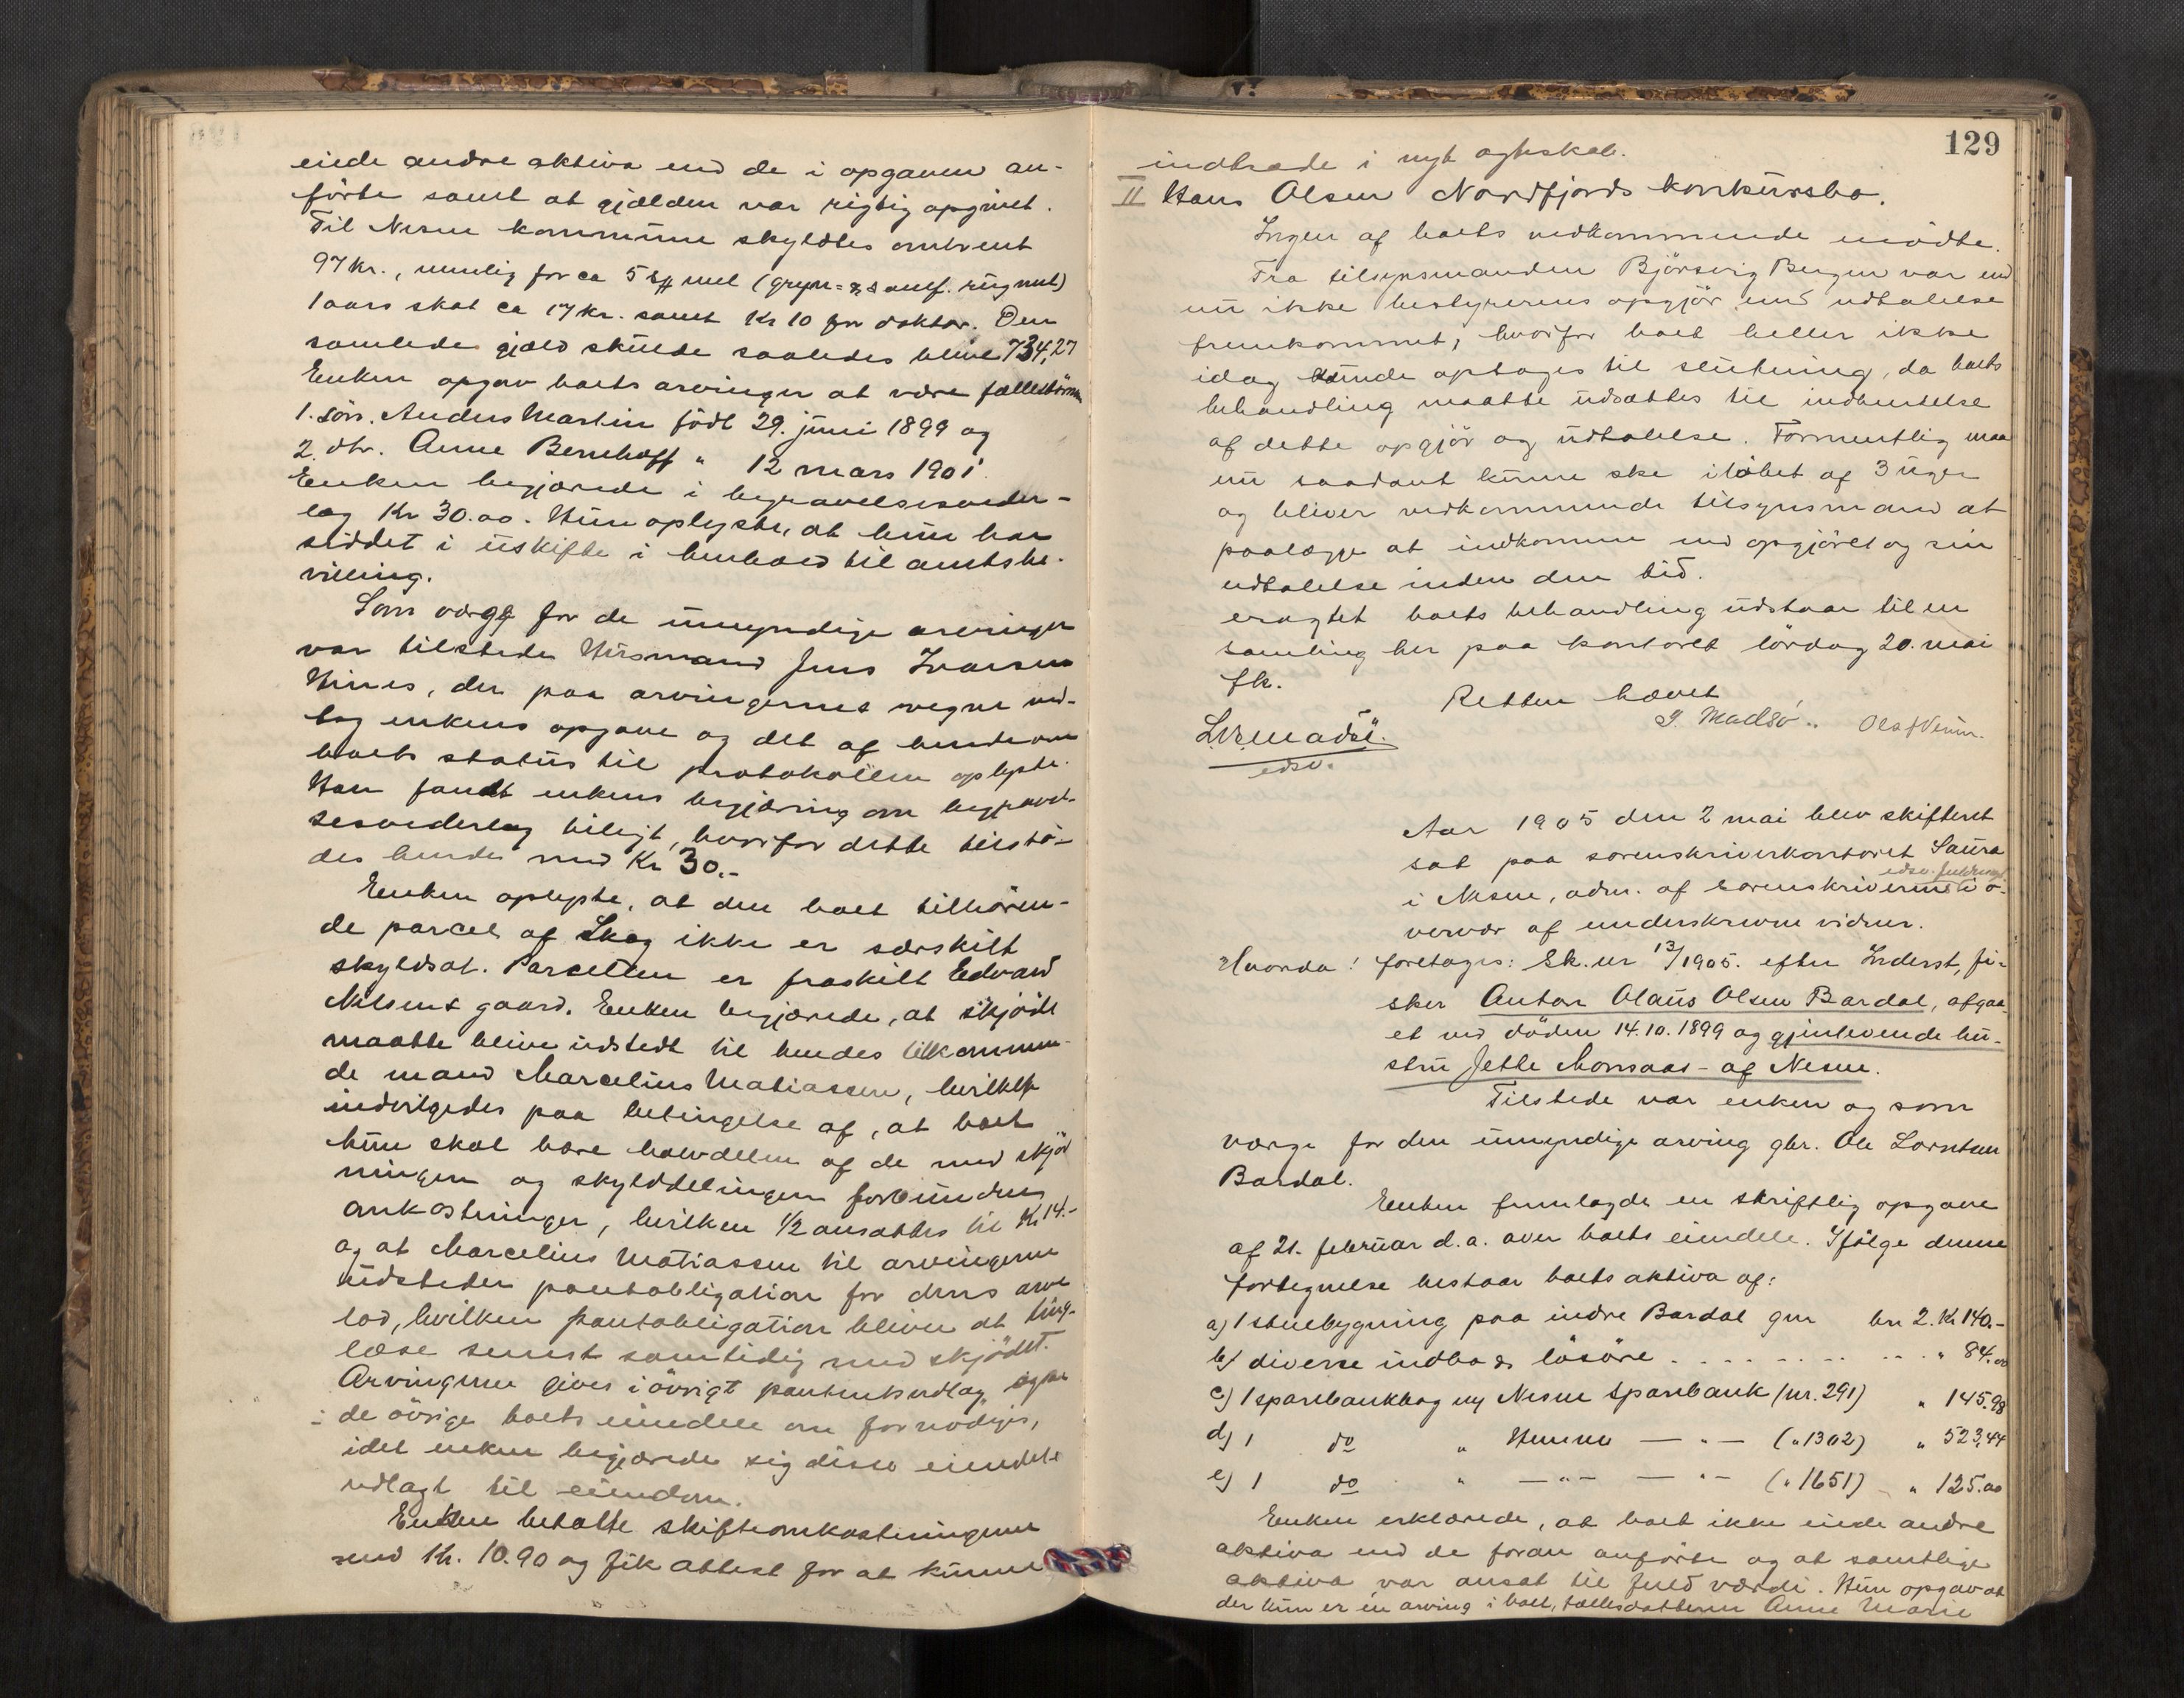 eiede andre aktiva end de i opgaven an-
førte samt at gjælden var rigtig opgivet.
Til Nesne kommune skyldtes omtrent
97 kr., nemlig for ca 5 mel (gryn= samf. rügmel)
1 aars skat ca 17 kr. samt Kr 10 for doktor. Den
samlede gjæld skulde saaledes blive 734,27
Enken opgav boets arvinger at være fællesbörn
1. sön. Anders Martin födt 29. juni 1899 og
2. dtr. Anne Bernhoff " 12 mars 1901.
Enken begjærede i begravelsesveder-
lag Kr 30.00. Hun oplyste, at hun har
siddet i uskifte i henhold til amtsbe-
villing.
Som værge for de umyndige arvinger
var tilstede Husmand Jens Ivarsen
Hines, der paa arvingernes vegne ved-
tog enkens opgave og det af hende om
boets status til protokollen oplyste.
Han fandt enkens begjæring om begravel-
sesvederlag biligt, hvorfor dette tilstö-
des hende med Kr 30.-
Enken oplyste, at den boet tilhören-
de parcel af Skog ikke er særskilt
skyldsat. Parcellen er fraskilt Edvard
Nilsens gaard. Enken begjærede, at skjöde
maatte blive udstedt til hendes tilkommen-
de mand Marcelius Matiassen, hvilket
indvilgedes paa betingelse af, at boet
kun skal bære halvdelen af de med skjöd
ningen og skylddelingen forbundne
omkostninger, hvilken 1/2 ansættes til Kr 14.-
og at Marcelius Matiassen til arvingerne
udsteder pantobligation for deres arve
lod, hvilken pantobligation bliver at ting-
læse senest samtidig med skjödet.
Arvingerne gives i övrigt panteudlæg
i de övrige boets eiendele om fornödiges,
idet enken begjærede sig disse eiendele
udlagt til eiendom.
Enken betalte skifteomkostningerne
med Kr. 10.90 og fik attest for at kunne
129
indtræde i nyt egteskab.
II Hans Olsen Nordfjords konkursbo.
Ingen af boets vedkommende mödte.
Fra tilsynsmanden Björsvig Bergen var end
nu ikke bestyrerens opgjör med udtalelse
fremkommet, hvorfor boet heller ikke
idag kunde optages til slutning, da boets
behandling maatte udsættes til indhentelse
af dette opgjör og udtalelse. Formentlig maa
nu saadant kunne ske i löbet af 3 uger
og bliver vedkommende tilsynsmand at
paalægge at indkomme med opgjöret og sin
udtalelse inden den tid.
eragtet boets behandling udstaar til en
samling her paa kontoret lördag 20. mai
fk.
Retten hævet
Madsö. Olaf
Madsö.
edsv.
Aar 1905 den 2 mai blev skifteret
sat paa sorenskriverkontoret Saura
edsv. fuldmægt.
i Nesne, adm. af sorenskriverens i o-
vervær af underskrevne vidner.
Hvorda! foretages: Sk. nr 13/1905. efter Inderst, fi-
sker Anton Olaüs Olsen Bardal, afgaa-
et ved döden 14.10.1899 og gjenlevende hu-
stru Jette Monsaas - af Nesne.
Tilstede var enken og som
værge for den umyndige arving gbr. Ole Lorntsen
Bardal.
Enken fremlagde en skriftlig opgave
af 21. februar d.a. over boets eiendele. Ifölge denne
fortegnelse bestaar boets aktiva af:
a) 1 stuebygning paa indre Bardal gnr bn 2. Kr 140.-
b) diverse indbo & lösöre . . . . . . . . . " 84.00
c) 1 sparebankbog Nesne Sparebank (nr. 291) " 145.98
d) 1 do " Hemnes — " — (" 1302) " 523,44
e) 1 do " — " — — " — (" 1651) " 125.00
Enken erklærede, at boet ikke eiede andre
aktiva end de foran anförte og at samtlige
aktiva var ansat til fuld værdi. Hun opgav at
der kun er en arving i boet, fællesdatteren Anne Marie